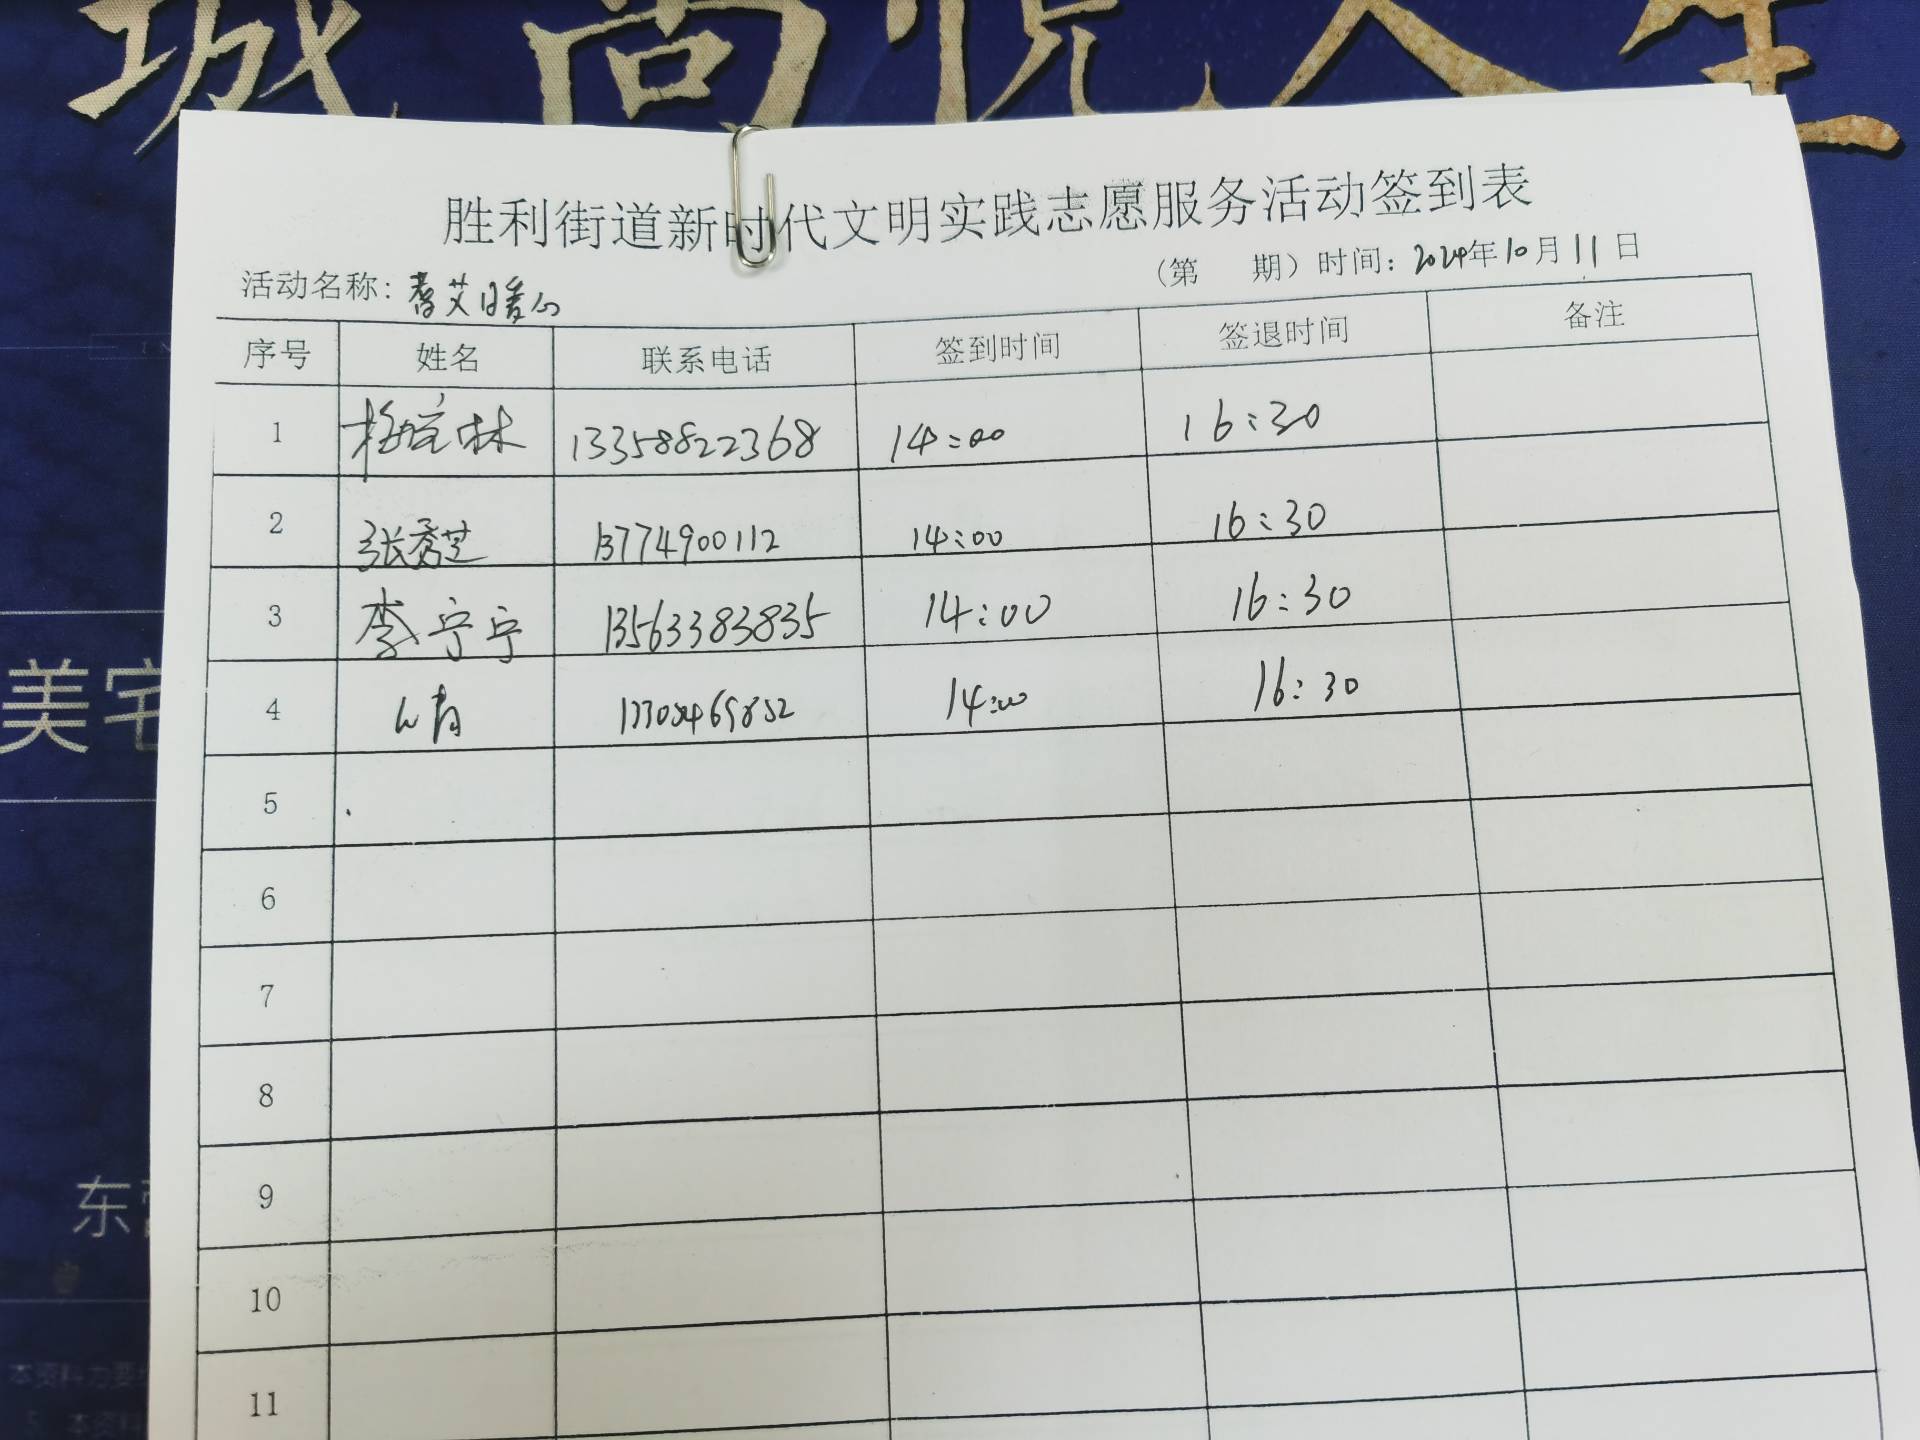 城尚悦人生
胜利街道新时代文明实践志愿服务活动签到表
（第 期）时间：2024年10月11日
活动名称：耆艾日暖心
序号 姓名 联系电话 签到时间 签退时间 备注
1 林 13358822368 14:00 16:30
2 张秀芝 13774900112 14:00 16:30
3 李宁宁 13563383835 14:00 16:30
4 14:00 16:30
5
6
7
8
9
10
11
美宅
东
本资料为要
5、本资料